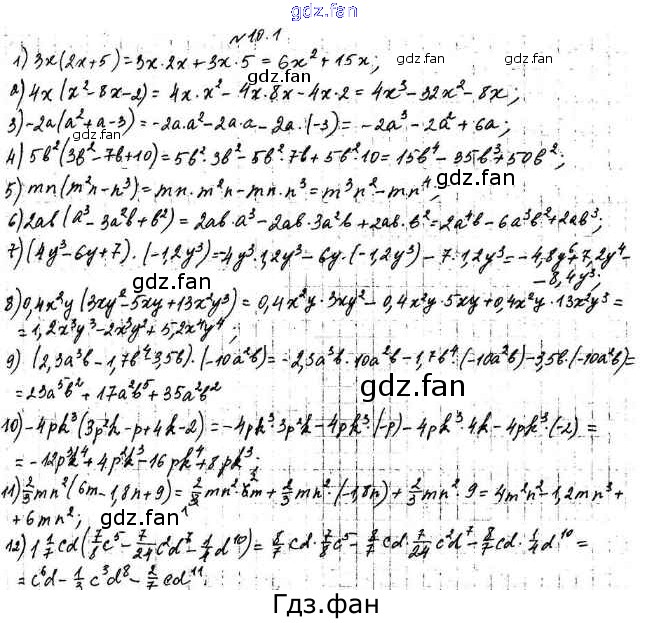 gdz.fan
№10.1
1) 3x(2x+5)=3x·2x+3x·5=6x²+15x;
2) 4x(x²-8x-2)=4x·x²-4x·8x-4x·2=4x³-32x²-8x;
3) -2a(a²+a-3)=-2a·a²-2a·a-2a·(-3)=-2a³-2a²+6a;
gdz.fan
4) 5b²(3b²-7b+10)=5b²·3b²-5b²·7b+5b²·10=15b⁴-35b³+50b²;
gdz.fan
5) mn(m²n-n³)=mn·m²n-mn·n³=m³n²-mn⁴;
6) 2ab(a³-3a²b+b²)=2ab·a³-2ab·3a²b+2ab·b²=2a⁴b-6a³b²+2ab³;
7) (4y³-6y+7)·(-1,2y³)=4y³·1,2y³-6y·(-1,2y³)-7·1,2y³=-4,8y⁶+7,2y⁴-
-8,4y³;
gdz.fan
8) 0,4x²y(3xy²-5xy+13x²y³)=0,4x²y·3xy²-0,4x²y·5xy+0,4x²y·13x²y³=
=1,2x³y³-2x³y²+5,2x⁴y⁴;
9) (2,3a³b-1,7b⁴-3,5b)·(-10a²b)=-2,3a³b·10a²b-1,7b⁴·(-10a²b)-3,5b·(-10a²b)=
=23a⁵b²+17a²b⁵+35a²b²
gdz.fan
10) -4pk³(3p²k-p+4k-2)=-4pk³·3p²k-4pk³·(-p)-4pk³·4k-4pk³·(-2)=
=-12p³k⁴+4p²k³-16pk⁴+8pk³.
11) 2/3mn²(6m-1,8n+9)=2/3mn²·6m+2/3mn²·(-1,8n)+2/3mn²·9=4m²n²-1,2mn³+
+6mn²;
12) 1 1/7cd(7/8c⁵-7/24c²d⁷-1/4d¹⁰)=8/7cd·7/8c⁵-8/7cd·7/24c²d⁷-8/7cd·1/4d¹⁰=
=c⁶d-1/3c³d⁸-2/7cd¹¹.
gdz.fan
Гдз.фан